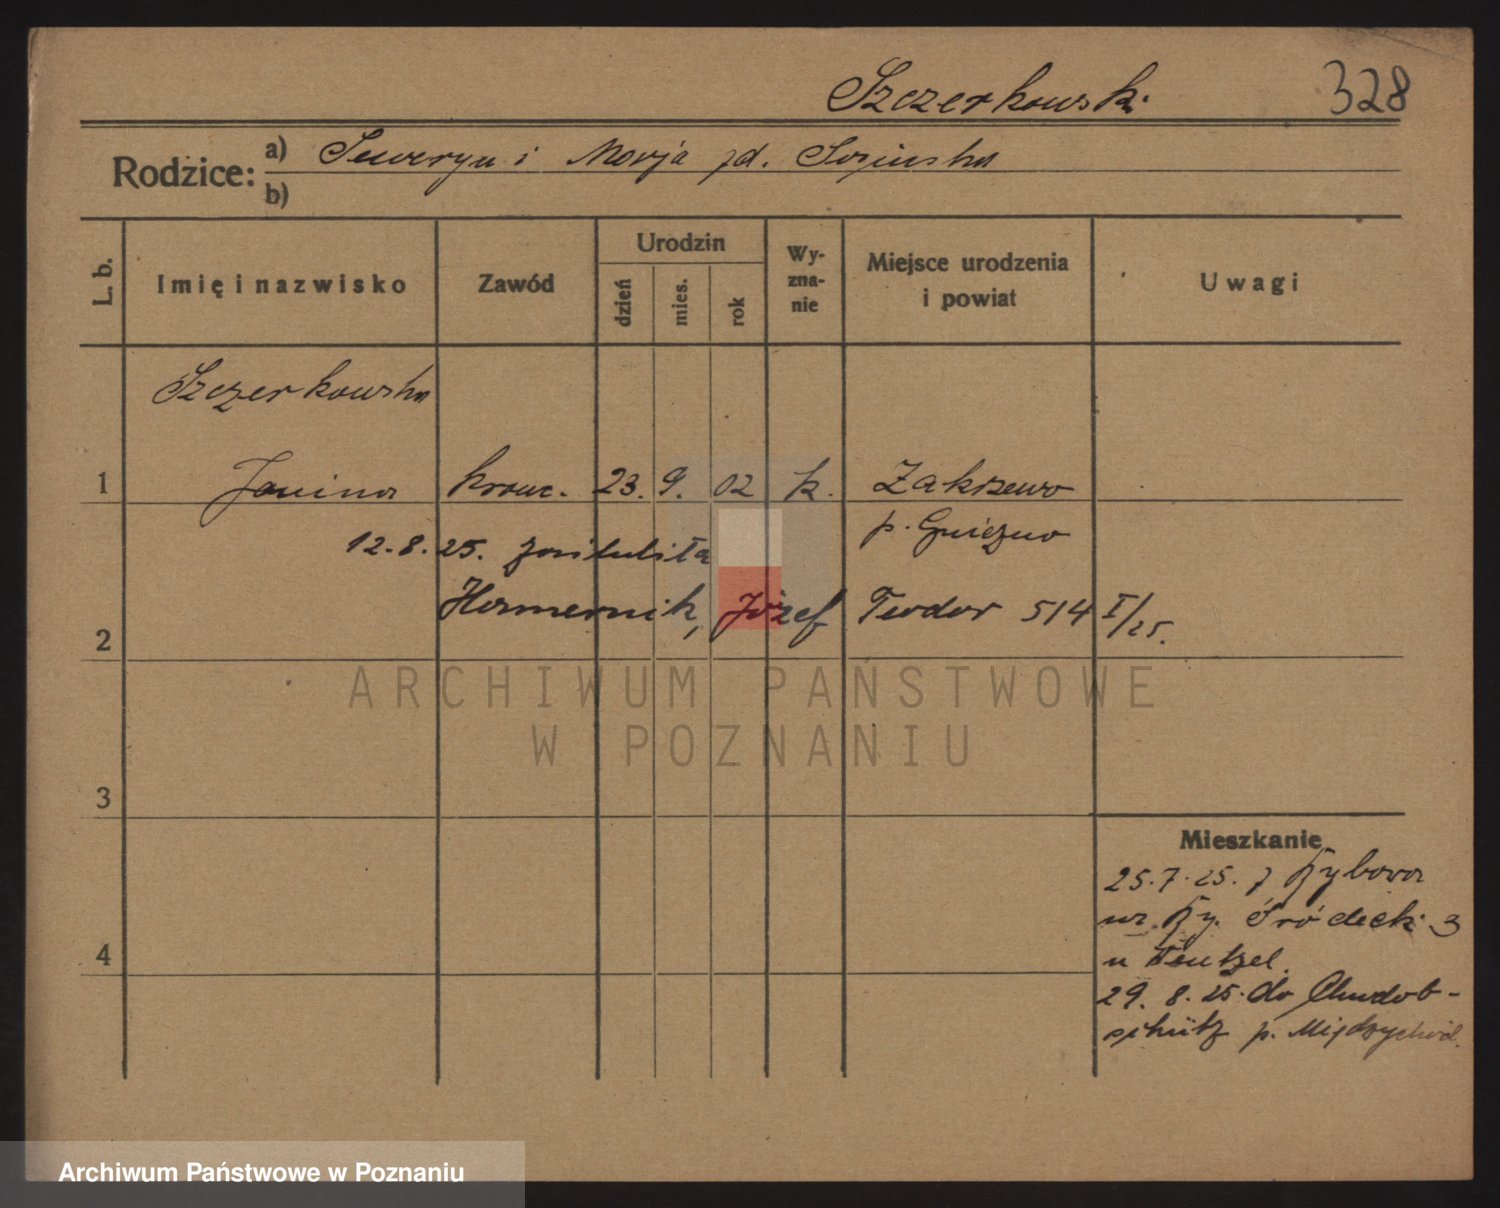 Szczerkowski 328
Rodzice: a) Seweryn i Marja zd.
b)
L. b. Imię i nazwisko Zawód Urodzin dzień mies. rok Wy-zna-nie Miejsce urodzenia i powiat Uwagi
Szczerkowska
1 Janina kraw. 23. 9. 02 k. Zakrzewo
p. Gniezno
12. 8. 25. zaślubiła
2 Józef Teodor 514 I/25.
ARCHIWUM PAŃSTWOWE
W POZNANIU
3
Mieszkanie
25. 7. 25. z
Śródecki 3
4 u
29. 8. 25. do
p. Międzychód.
Archiwum Państwowe w Poznaniu